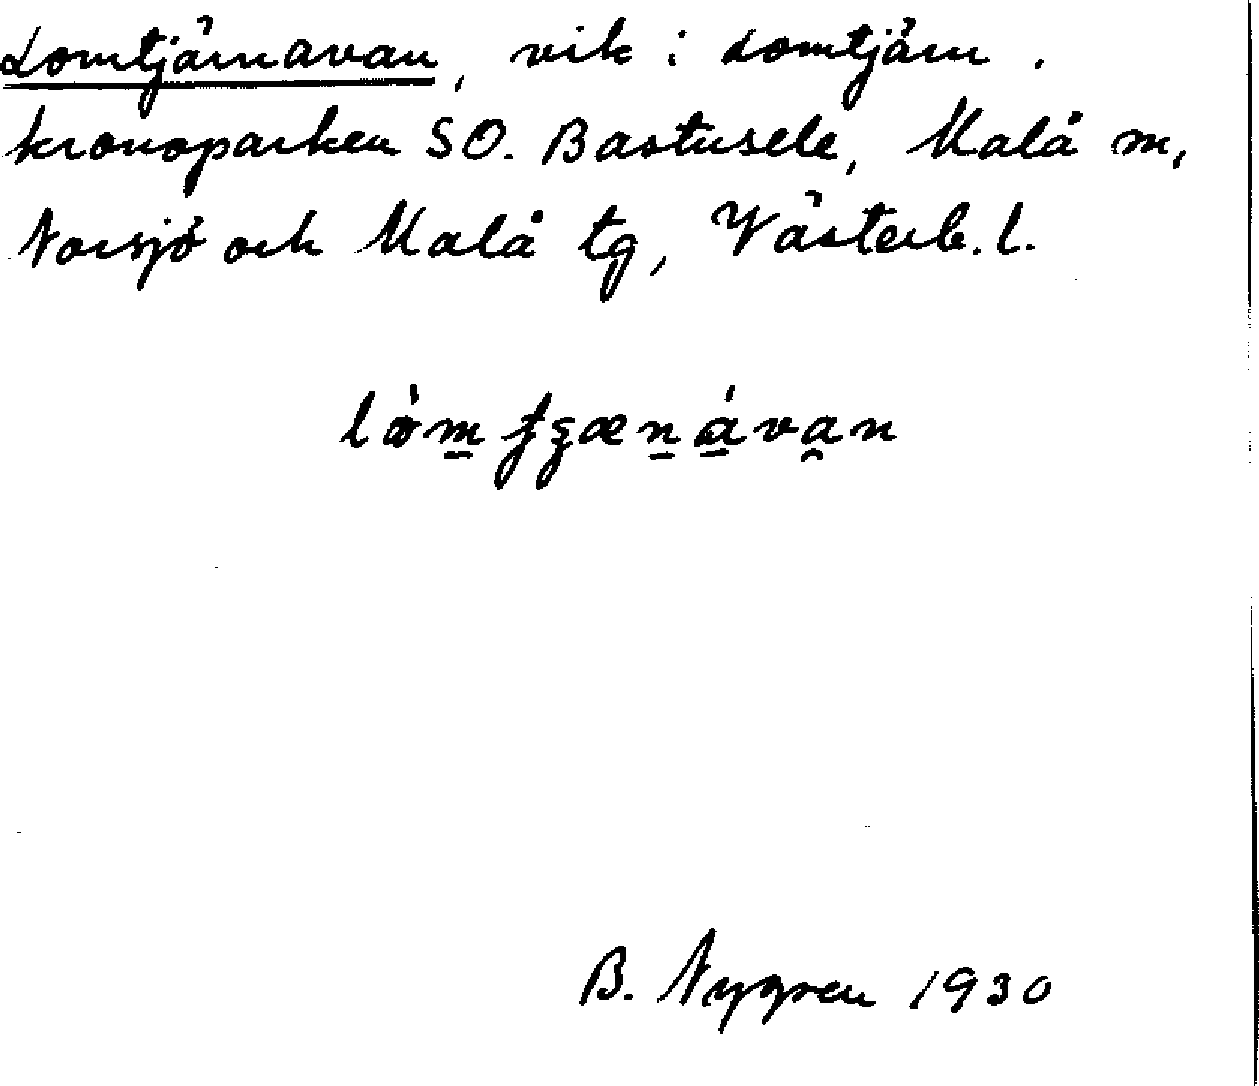 Lomtjärnavan, vik i Lomtjärn.
kronoparken SO. Bastusele, Malå sn,
Norsjö och Malå tg, Västerb. l.
B. Nygren 1930